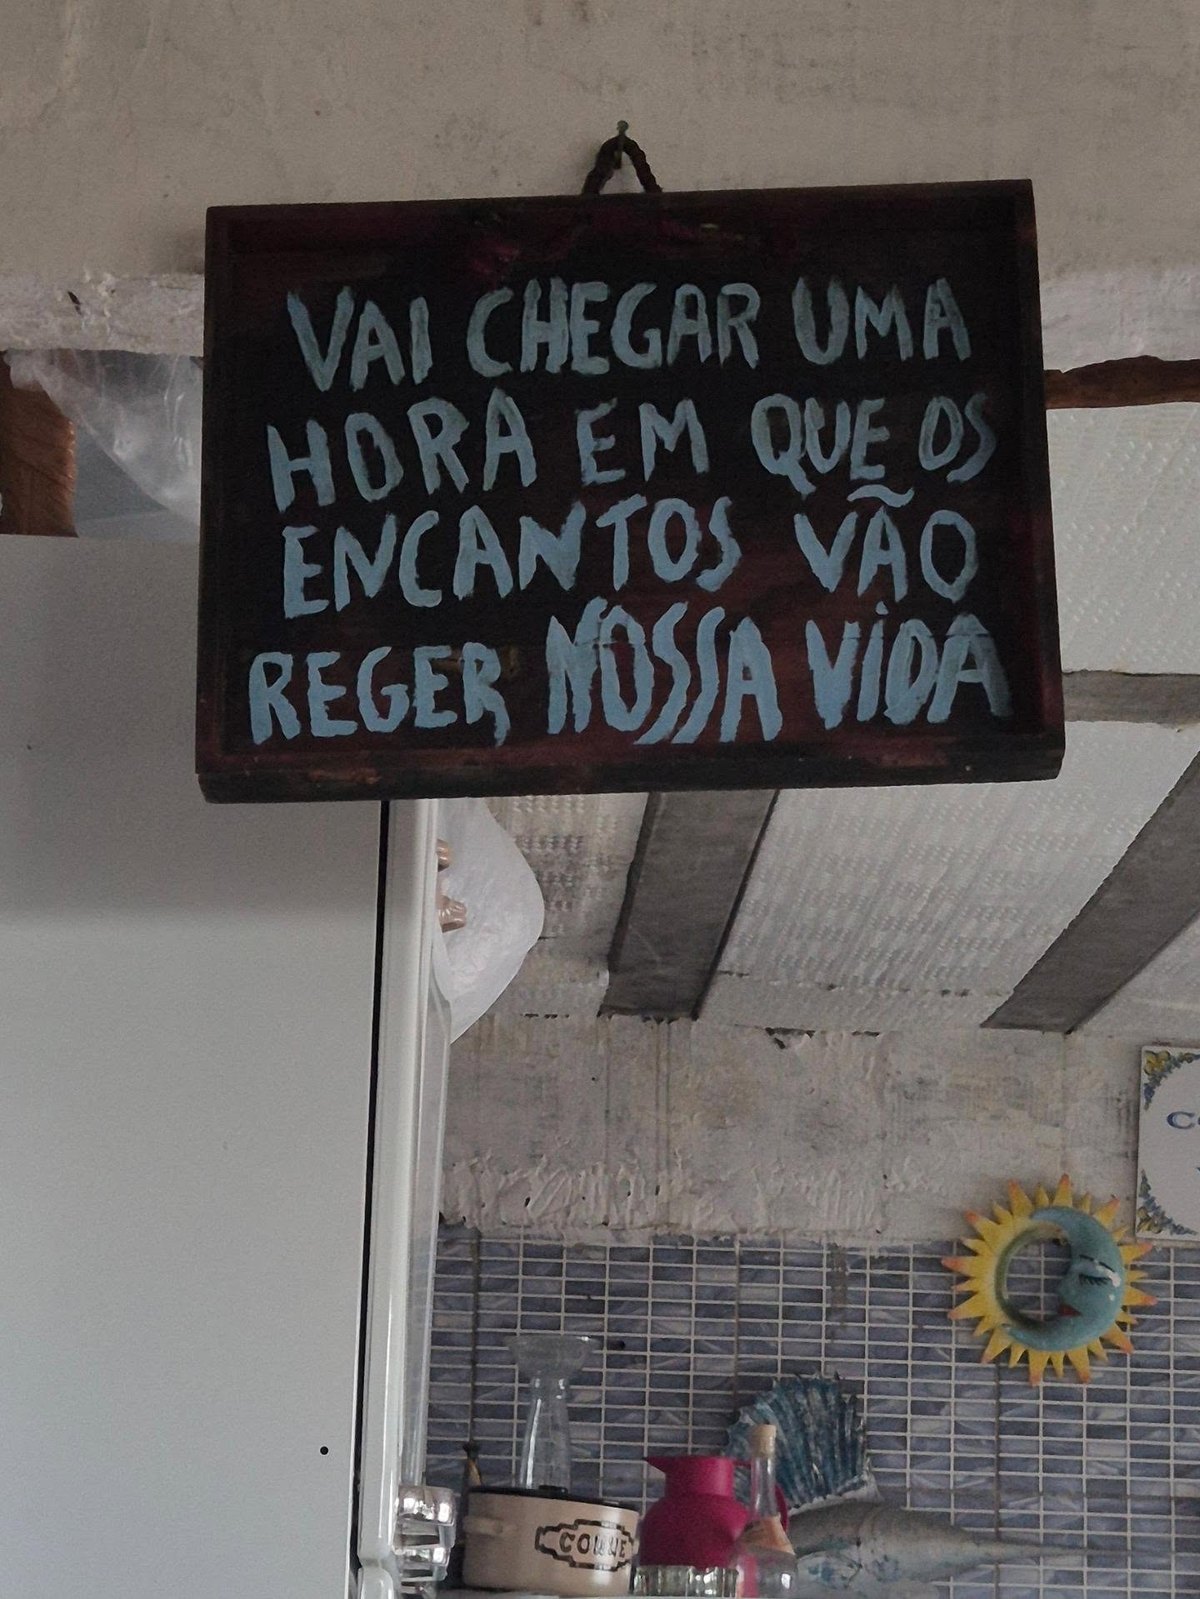 VAI CHEGAR UMA
HORA EM QUE OS
ENCANTOS VÃO
REGER NOSSA VIDA